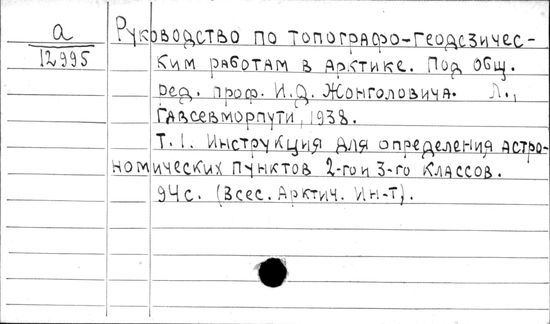 а
12995
Руководство по топографо-геодезичес-
ким работам в Арктике. Под общ.
ред. проф. И.Д. Жонголовича. Л.,
Главсевморпути, 1938.
Т.1. Инструкция для определения астро-
номических пунктов 2-го и 3-го классов.
94с. (Всес. Арктич. Ин-т).